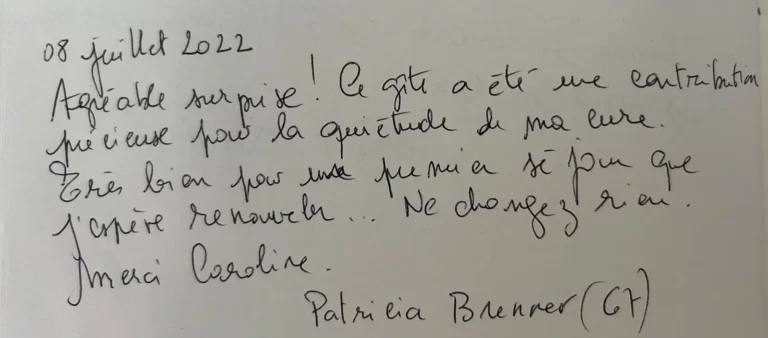 08 juillet 2022
Agréable surprise ! Ce gîte a été une contribution
précieuse pour la quiétude de ma cure.
Très bien pour un premier séjour que
j'espère renouveler... Ne changez rien.
Merci Caroline.
Patricia Brenner (67)